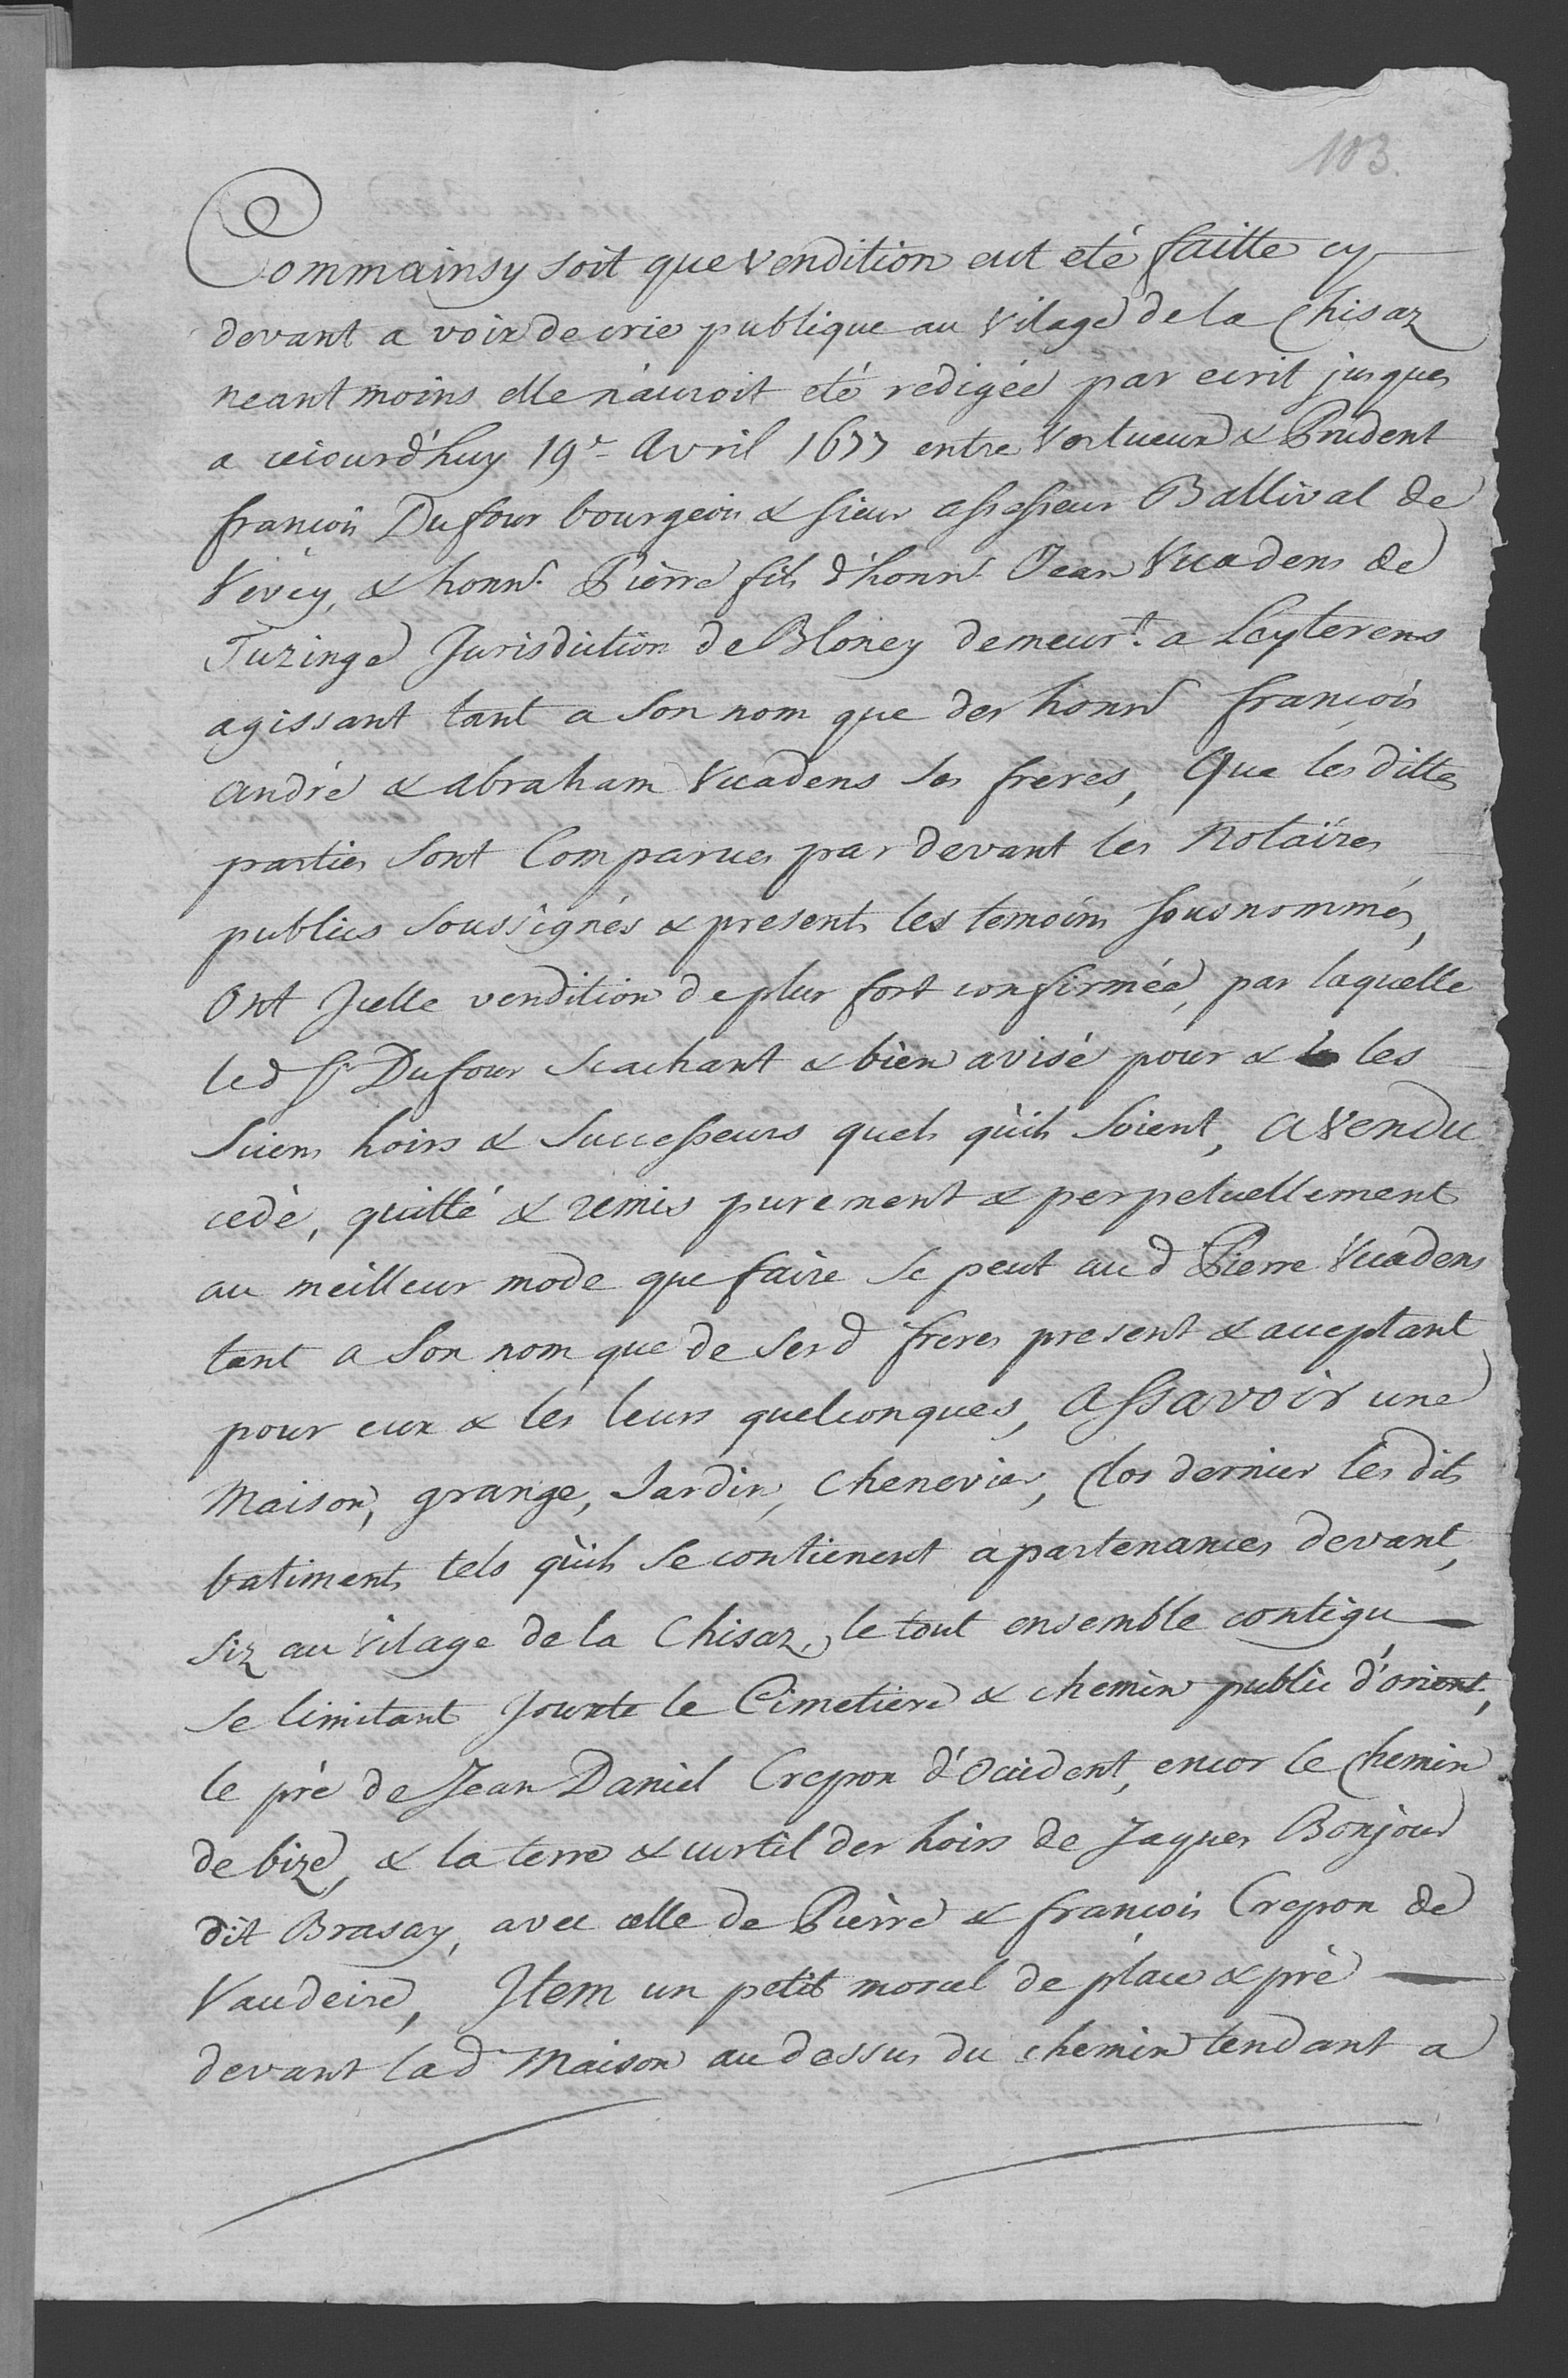 103.
Commainsy soit que vendition eut eté faitte cy
devant a voix de crie publique au vilage de la Chisaz
neantmoins elle n'auroit eté redigée par ecrit jusques
a cejourd'huy 19e Avril 1677 entre Vertueux & Prudent
françois Dufour bourgeois & sieur assesseur Ballival de
Vevey, & honn. Pierre fils d'honn. Jean Vuadens de
Tuzinge Jurisdiction de Bloney demeurt. a Leyterens
agissant tant a son nom que des honn. françois
andré & abraham Vuadens ses freres, Que les dittes
parties sont Comparues par devant les Notaires
publics soussignés & presents les temoins sousnommés,
Ont Jcelle vendition de plus fort confirmée, par laquelle
led Sr Dufour scachant & bien avisé pour & les
siens hoirs & successeurs quels qu'ils soient, a vendu
cedé, quitté & remis purement & perpetuellement
au meilleur mode que faire se peut aud Pierre Vuadens
tant a son nom que de sesd freres present & acceptant
pour eux & les leurs quelconques, assavoir une
Maison, grange, Jardin, Chenevier, Clos dernier les dits
batiments tels qu'ils se contienent apartenances devant,
siz au vilage de la Chisaz, le tout ensemble contigu
se limitant Jouxte le Cimetiere & chemin public d'orient,
le pré de Jean Daniel Crepon d'Occident, encor le Chemin
de bize, & la terre & curtil des hoirs de Jaques Bonjour
dit Brasay, avec celle de Pierre & françois Crepon de
Vaudeire, Jtem un petit morcel de place & pré
devant lad Maison au dessus du chemin tendant a